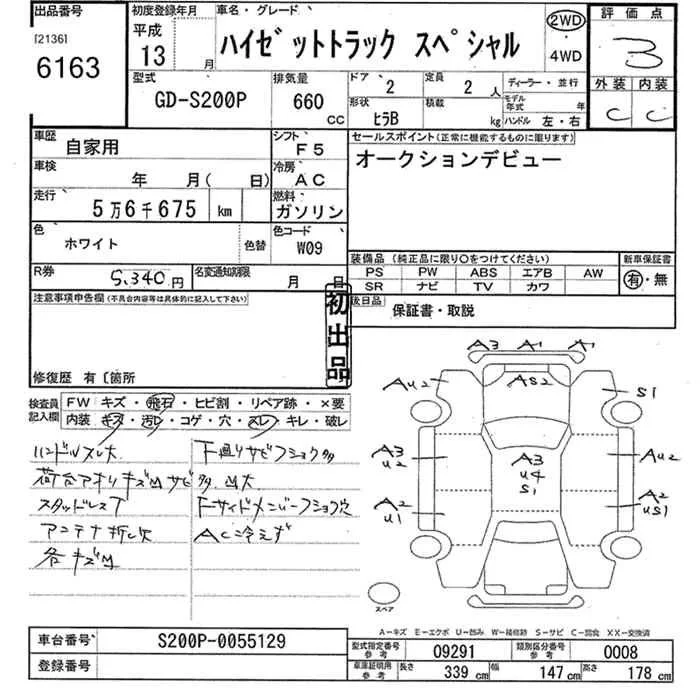 出品番号
[2136]
6163
初度登録年月
平成
13 月
車名・グレード
ハイゼットトラック スペシャル
2WD
・
4WD
評価点
3
外装 内装
C C
型式
GD-S200P
排気量
660 CC
ドア 2
定員 2 人
ディーラー・並行
形状 ヒラB
積載 kg
モデル年式 年
ハンドル 左・右
車歴 自家用
シフト F5
セールスポイント(正常に機能するものに限ります)
オークションデビュー
車検 年 月( 日)
冷房 AC
走行 5万6千675 km
燃料 ガソリン
色 ホワイト 色替
色コード W09
装備品(純正品に限り○をつけてください)
新車保証書
PS PW ABS エアB AW
SR ナビ TV カワ
有・無
R券 5,340円
名変通知期限 月 日
後日品 保証書・取説
注意事項申告欄(不具合内容等は具体的に記入して下さい)
初出品
修復歴 有〔箇所
検査員記入欄
FW キズ・飛石・ヒビ割・リペア跡・×要
内装 キズ・汚レ・コゲ・穴・スレ・キレ・破レ
ハンドルスレ大
下廻りサビフショク多
荷台アオリキズMサビ多、凹大
スタッドレスT
FサイドメンバーフショクR穴
アンテナ折レ欠
AC冷えず
各キズM
A3 A1 A1
AU2 AS2 S1
A3
U2
A3
U4
S1
AU2
A2
U1
A2
US1
スペア
A−キズ E−エクボ U−凹み W−補修跡 S−サビ C−腐食 XX−交換済
車台番号 S200P-0055129
登録番号
型式指定番号 参考 09291
類別区分番号 参考 0008
車庫証明用 参考 長さ 339 cm 幅 147 cm 高さ 178 cm